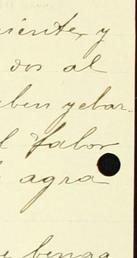 niente, y
dos al
ben y ebar
favor
agra
benga